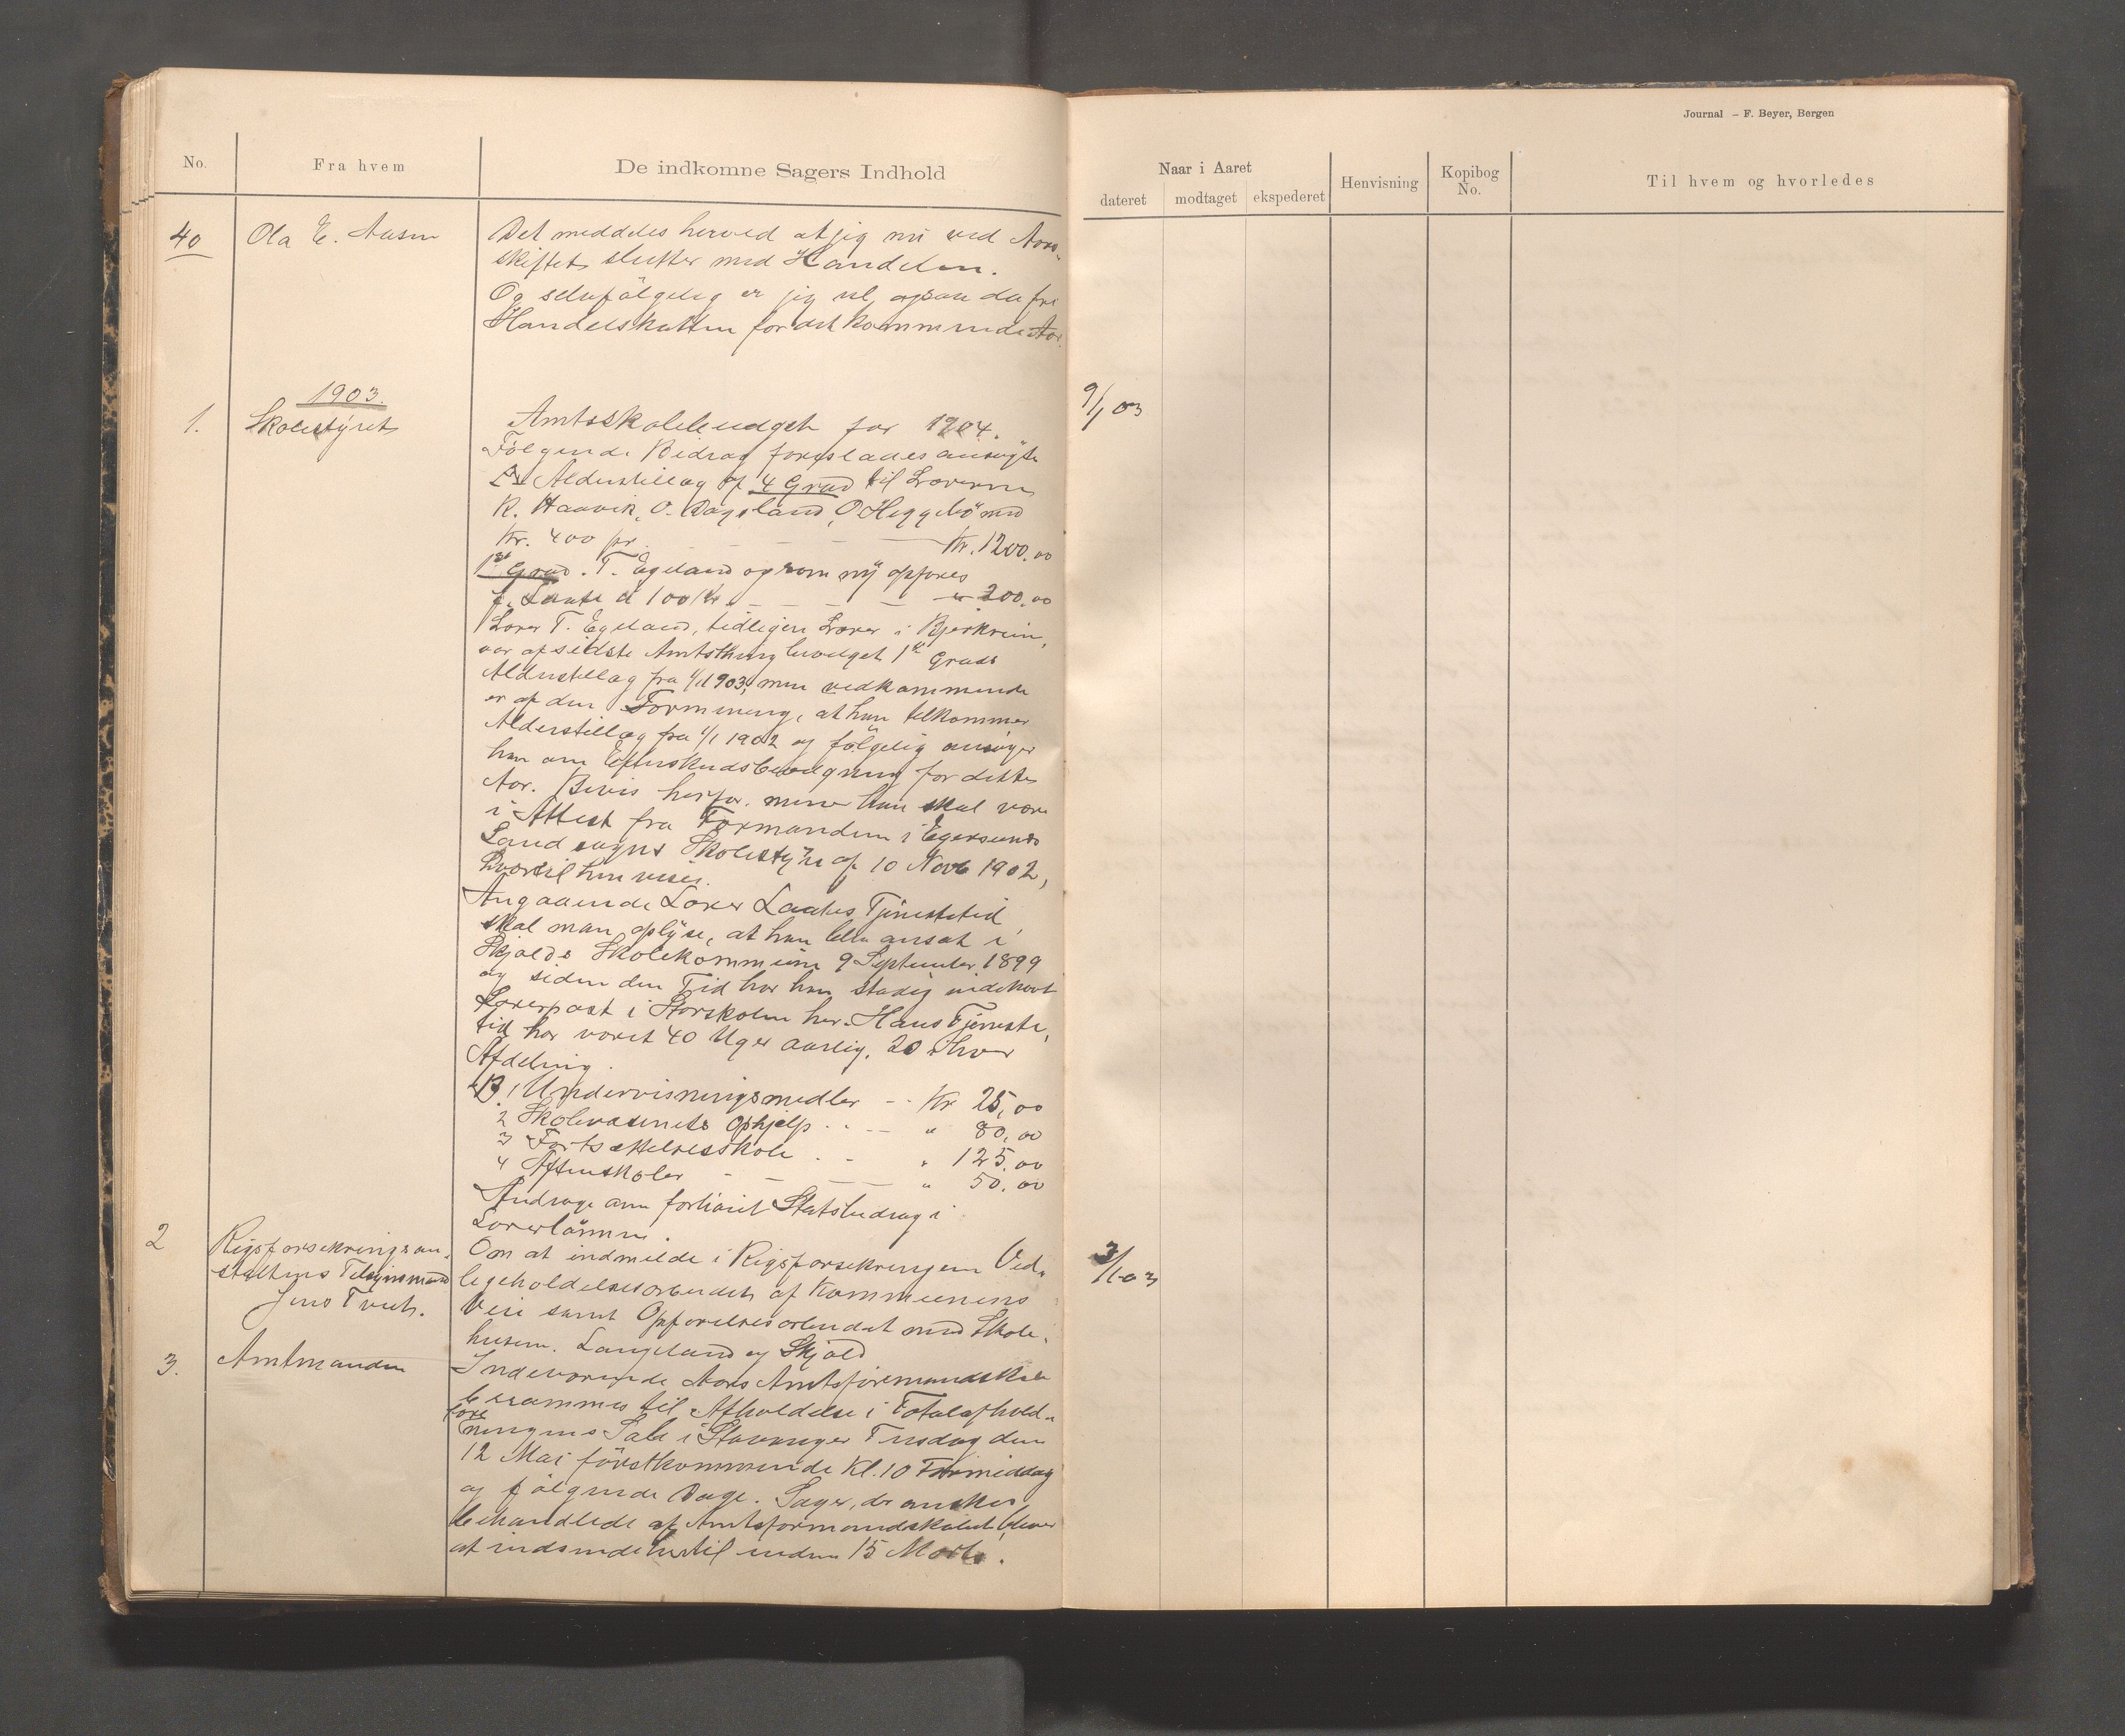 Journal – F. Beyer, Bergen
No.
Fra hvem
De indkomne Sagers Indhold
Naar i Aaret
dateret
modtaget
ekspederet
Henvisning
Kopibog
No.
Til hvem og hvorledes
40
Ola E. Aasen
Det meddeles herved at jeg nu ved Aars-
skiftet slutter med Handelen.
Og selvfølgelig er jeg vel ogsaa da fri
Handelskatten for det kommende Aar.
1903.
1.
Skolestyret
9/1 03
Amtsskolebudget for 1904.
Følgende Bidrag foreslaaes ansøgte
A. Alderstillæg af 4 Grad til Lærerne
K. Haavik, O. Dagsland, O Heggebø med
Kr. 400 pr. – – – – Kr. 1200.00
1st Grad. T. Egeland og som ny opføres
f. Laate a 100 Kr. – – – – 200.00
Lærer T. Egeland, tidligere Lærer i Bjerkreim,
var af sidste Amtsthing bevilget 1st Grads
Alderstillæg fra 1/1 1903, men vedkommende
er af den Formening, at ham tilkommer
Alderstillæg fra 1/1 1902 og følgelig ansøger
han om Efterskudsbevilgning for dette
Aar. Bevis herfor mener han skal være
i Attest fra Formanden i Egersunds
Landsogns Skolestyre af 10 Novb 1902,
hvortil henvises.
Angaaende Lærer Laates Tjenestetid
skal man oplyse, at han blev ansat i
Skjolds Skolekommune 9 September 1899
og siden den Tid har han stadig indehavt
Lærerpost i Storskolen her. Hans Tjeneste-
tid har været 40 Uger aarlig, 20 i hver
Afdeling.
B. 1 Undervisningsmidler – – Kr 25,00
2 Skolevæsenets Ophjelp . . – – " 80,00
3 Fortsættelsesskole . – " 125.00
4 Aftenskoler – – – " 50.00
Andrage om forhøiet Statsbidrag i
Lærerlønnen.
2
Rigsforsekringsan-
staltens Tilsynsmand
Jens Tveit.
3/1 03
Om at indmelde i Rigsforsekringen Ved-
ligeholdelsesarbeidet af Kommunens
Veie samt Opførelsesarbeidet med Skole-
husene. Langeland og Skjold
3.
Amtmanden
Indeværende Aars Amtsformandskab
berammes til Afholdelse i Totalafhold-
fore
ningens Sale i Stavanger Tirsdag den
12 Mai førstkommende Kl. 10 Formiddag
og følgende Dage. Sager, der ønskes
behandlede af Amtsformandskabet bliver
at indsende hertil inden 15 Marts.